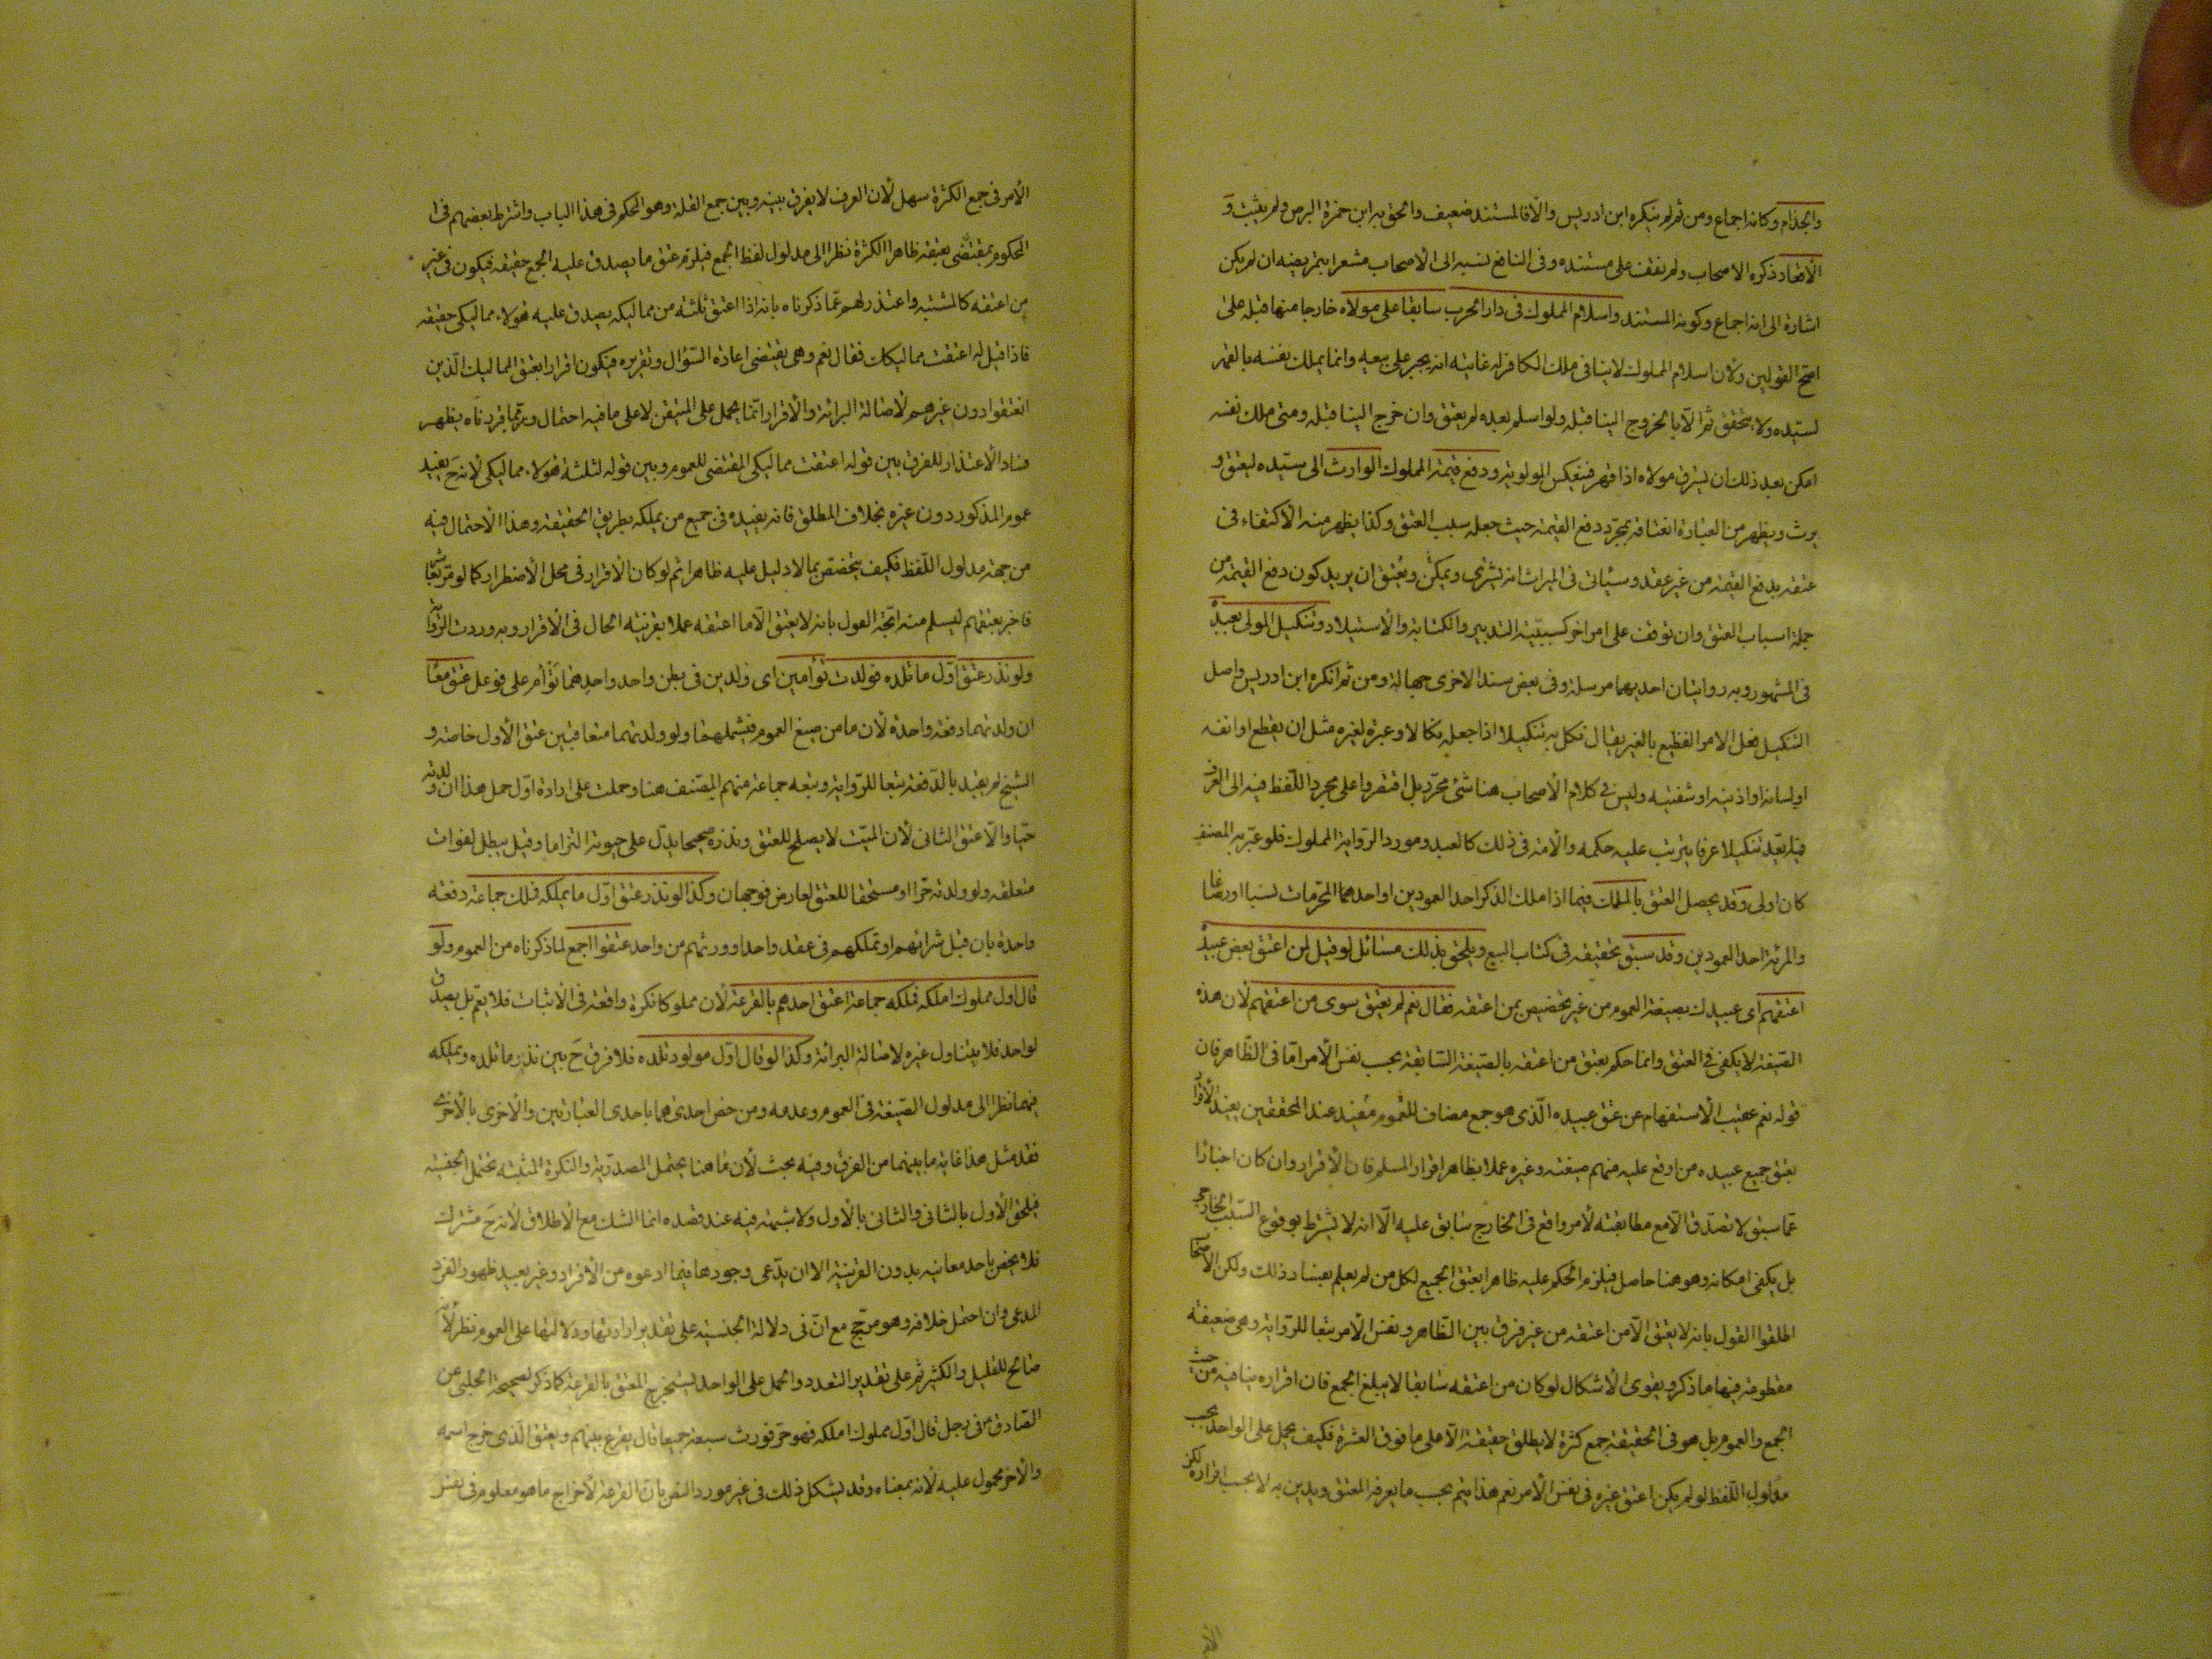 والجذام وكانه اجماع ومن ثم لم ينكره ابن ادريس والا فالمستند ضعيف والحق به ابن حمزة البرص ولم يثبت و
الاقعاد ذكره الاصحاب ولم نقف على مستنده وفى النافع نسبه الى الاصحاب مشعرا بتمريضه ان لم يكن
اشارة الى انه اجماع وكونه المستند واسلام المملوك فى دار الحرب سابقا على مولاه خارجا منها قبله على
اصح القولين ولان اسلام المملوك لا ينافى ملك الكافر له غايته انه يجبر على بيعه وانما يملك نفسه بالقهر
لسيده ولا يتحقق ثم الا بالخروج الينا قبله ولو اسلم بعده لم يعتق وان خرج الينا قبله ومتى ملك نفسه
امكن بعد ذلك ان يسترق مولاه اذا قهر فتنعكس المولوية ودفع قيمة المملوك الوارث الى سيده ليعتق و
يرث ويظهر من العبارة انعتاقه بمجرد دفع القيمة حيث جعله سبب العتق وكذا يظهر منه الاكتفاء فى
عتقه بدفع القيمة من غير عقد وسيأتى فى الميراث انه يشترى ويعتق ويمكن ان يريد كون دفع القيمة من
جملة اسباب العتق وان توقف على امر اخر كسببية التدبير والكتابة والاستيلاد وتنكيل المولى بعبده
فى المشهور وبه روايتان احديهما مرسلة وفى بعض سند الاخرى جهالة ومن ثم انكره ابن ادريس واصل
التنكيل فعل الامر الفظيع بالغير يقال نكل به تنكيلا اذا جعله نكالا وعبرة لغيره مثل ان يقطع اوانفه
او لسانه او اذنيه او شفتيه وليس فى كلام الاصحاب هنا شئ محرر بل اقتصروا على مجرد اللفظ فيه الى العرف
فما يعد تنكيلا عرفا يترتب عليه حكمه والامة فى ذلك كالعبد ومورد الرواية المملوك فلو عبر به المصنف
كان اولى وقد يحصل العتق بالملك فيما اذا ملك الذكر احد العمودين او احدهما المحرمات نسبا او رضاعا
والمرئة احد العمودين وقد سبق تحقيقه فى كتاب البيع ويلحق بذلك مسائل لو قيل لمن اعتق بعض عبيده
اعتقتهم اى عبيدك بصيغة العموم من غير تخصيص بمن اعتقه فقال نعم لم يعتق سوى من اعتقهم لان هذه
الصيغة لا يكفى فى العتق وانما حكم بعتق من اعتقه بالصيغة السابقة بحسب نفس الامر اما فى الظاهر فان
قوله نعم عقيب الاستفهام عن عتق عبيده الذى هو جمع مضاف للعموم مفيد عند المحققين يفيد الاقرار
بعتق جميع عبيده من اوقع عليه منهم صيغته وغيره عملا بظاهر اقرار المسلم فان الاقرار وان كان اخبارا
عما سبق لا تصدق الا مع مطابقته لامر واقع فى الخارج سابق عليه الا انه لا يشترط بوقوع السبب الخارجى
بل يكفى امكانه وهو هنا حاصل فيلزم الحكم عليه ظاهرا بعتق الجميع لكل من لم يعلم بفساد ذلك ولكن الاصحاب
اطلقوا القول بانه لا يعتق الا من اعتقه من غير فرق بين الظاهر ونفس الامر تبعا للرواية وهى ضعيفة
مقطوعة فيها ما ذكر ويقوى الاشكال لو كان من اعتقه سابقا لا يبلغ الجمع فان اقراره ينافيه من حيث
الجمع والعموم بل هو فى الحقيقة جمع كثرة لا يطلق حقيقة الا على ما فوق العشرة فكيف يحمل على الواحد بحسب
مدلول اللفظ لو لم يكن اعتق غيره فى نفس الامر نعم هذا يتم بحسب ما يعرفه المعتق ويدين به لا بحسب اقراره لكن
الامر
الامر فى جمع الكثرة سهل لان العرف لا يفرق بينه وبين جمع القلة وهو المحكم فى هذا الباب واشترط بعضهم فى ا
لمحكوم بمقتضى بعتقه ظاهرا الكثرة نظرا الى مدلول لفظ الجمع فيلزم عتق ما يصدق عليه الجمع حقيقة فيكون فى غير
من اعتقه كالمشتبه واعتذر لهم عما ذكرناه بانه اذا اعتق ثلثة من مماليكه يصدق عليه هؤلاء مماليكى حقيقة
فاذا قيل له اعتقت مماليكك فقال نعم وهى يقتضى اعادة السؤال وتقريره فيكون اقرارا بعتق المماليك الذين
انعتقوا دون غيرهم لاصالة البرائة والاقرار انما يحمل على المتيقن لا على ما فيه احتمال وربما قررناه يظهر
فساد الاعتذار للفرق بين قوله اعتقت مماليكى المقتضى للعموم وبين قوله لثلثة هؤلاء مماليكى لانه ح يفيد
عموم المذكور دون غيره بخلاف المطلق فانه يفيده فى جميع من يملكه بطريق الحقيقة وهذا الاحتمال فيه
من جهة مدلول اللفظ فكيف يتخصص بما لا دليل عليه ظاهرا ثم لو كان الاقرار فى محل الاضطرار كما لو مر بعشار
فاخبر بعتقهم ليسلم منه اتجه القول بانه لا يعتق الا ما اعتقه عملا بقرينة الحال فى الاقرار وبه وردت الرواية
ولو نذر عتق اول ما تلده فولدت توأمين اى ولدين فى بطن واحد واحدهما توأم على فوعل عتق معا
ان ولدتهما دفعة واحدة لان ما من صيغ العموم فيشملهما ولو ولدتهما متعاقبين عتق الاول خاصة و
الشيخ لم يقيد بالدفعة تبعا للرواية وتبعه جماعة منهم المصنف هنا وحملت على ارادة اول حمل هذا ان ولدته
حيا والا عتق الثانى لان الميت لا يصلح للعتق ونذره صحيحا يدل على حيوته التزاما وقيل يبطل لفوات
متعلقه ولو ولدته حرا او مستحقا للعتق لعارض فوجهان وكذا لو نذر عتق اول ما يملكه فملك جماعة دفعة
واحدة بان قبل شرائهم او تملكهم فى عقد واحد او ورثهم من واحد عتقوا اجمع لما ذكرناه من العموم ولو
قال اول مملوك املكه فملكه جماعة اعتق احدهم بالقرعة لان مملوكا نكرة واقعة فى الاثبات فلا يعم بل يصدق
لواحد فلا يتناول غيره لاصالة البرائة وكذا لو قال اول مولود تلده فلا فرق ح بين نذر ما تلده ويملكه
فيهما نظرا الى مدلول الصيغة فى العموم وعدمه ومن خص احدىهما باحدى العبارتين والاخرى بالاخرى
فقد مثل هذا غاية ما بينهما من الفرق وفيه بحث لان ما هنا يحتمل المصدرية والنكرة المثبتة تحتمل الجنسية
فيلحق الاول بالثانى والثانى بالاول ولا شبهة فيه عند قصده انما الشك مع الاطلاق لانه ح مشترك
فلا يخص باحد معانيه بدون القرينة الا ان يدعى وجودها فيما ادعوه من الافراد وغير بعيد ظهور الفرد
المدعى وان احتمل خلافه وهو مرجح مع ان فى دلالة الجنسية على تقدير ارادتها ودلالتها على العموم نظر لانه
صالح للقليل والكثير ثم على تقدير التعدد والحمل على الواحد ليستخرج المعتق بالقرعة كما ذكر لصحيحة الحلبى عن
الصادق فى رجل قال اول مملوك املكه فهو حر فورث سبعة جميعا قال يقرع بينهم ويعتق الذى خرج اسمه
والاخر محمول عليه لانه بمعناه وقد يشكل ذلك فى غير مورد النص بان القرعة لاخراج ما هو معلوم فى نفس